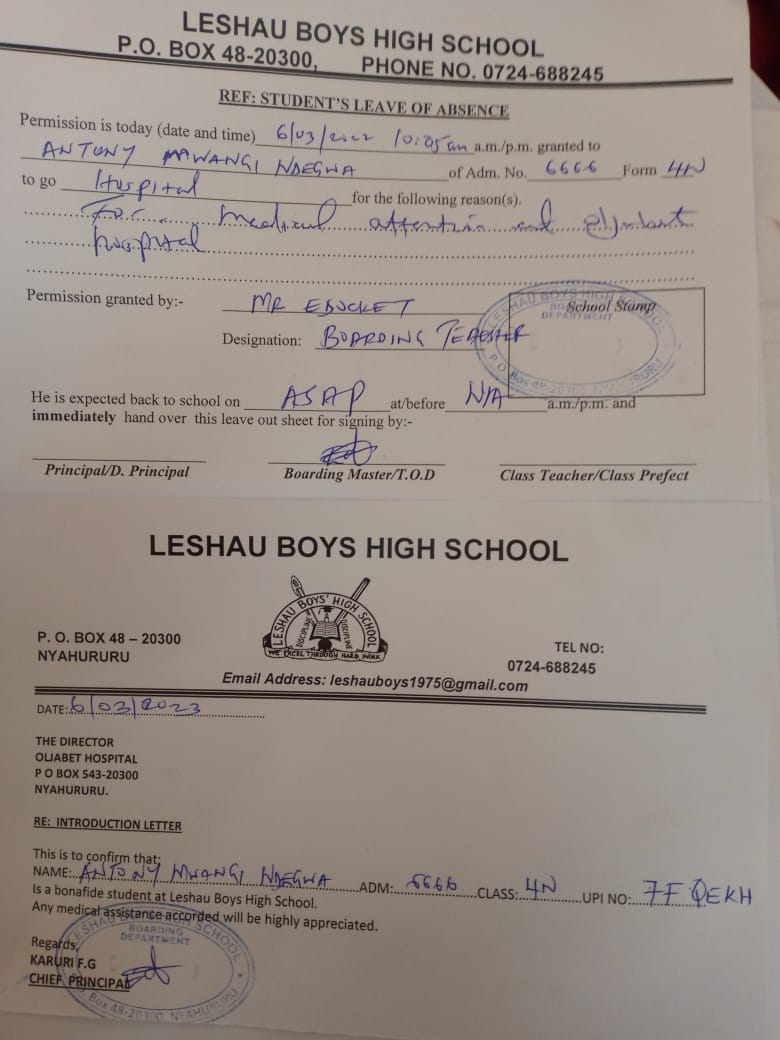 LESHAU BOYS HIGH SCHOOL
P.O. BOX 48-20300, PHONE NO. 0724-688245
REF: STUDENT'S LEAVE OF ABSENCE
Permission is today (date and time) 6/03/2022 10:05am a.m./p.m. granted to
ANTONY MWANGI NDEGWA of Adm. No. 6666 Form 4N
to go Hospital for the following reason(s).
For medical attention and
hospital
Permission granted by:- MR EBUCKET
School Stamp
Designation: BOARDING TEACHER
LESHAU BOYS HIGH SCHOOL
BOARDING DEPARTMENT
P.O. Box 48-20300, NYAHURURU
He is expected back to school on ASAP at/before N/A a.m./p.m. and
immediately hand over this leave out sheet for signing by:-
Principal/D. Principal Boarding Master/T.O.D Class Teacher/Class Prefect
LESHAU BOYS HIGH SCHOOL
LESHAU BOYS' HIGH SCHOOL
DISCIPLINE
WE EXCEL THROUGH HARD WORK
P. O. BOX 48 – 20300
NYAHURURU
TEL NO:
0724-688245
Email Address: leshauboys1975@gmail.com
DATE: 6/03/2023
THE DIRECTOR
OLJABET HOSPITAL
P O BOX 543-20300
NYAHURURU.
RE: INTRODUCTION LETTER
This is to confirm that;
NAME: ANTONY MWANGI NDEGWA ADM: 6666 CLASS: 4N UPI NO: 7FQEKH
Is a bonafide student at Leshau Boys High School.
Any medical assistance accorded will be highly appreciated.
Regards,
KARURI F.G
CHIEF PRINCIPAL
LESHAU BOYS HIGH SCHOOL
BOARDING
DEPARTMENT
Box 48-20300, NYAHURURU